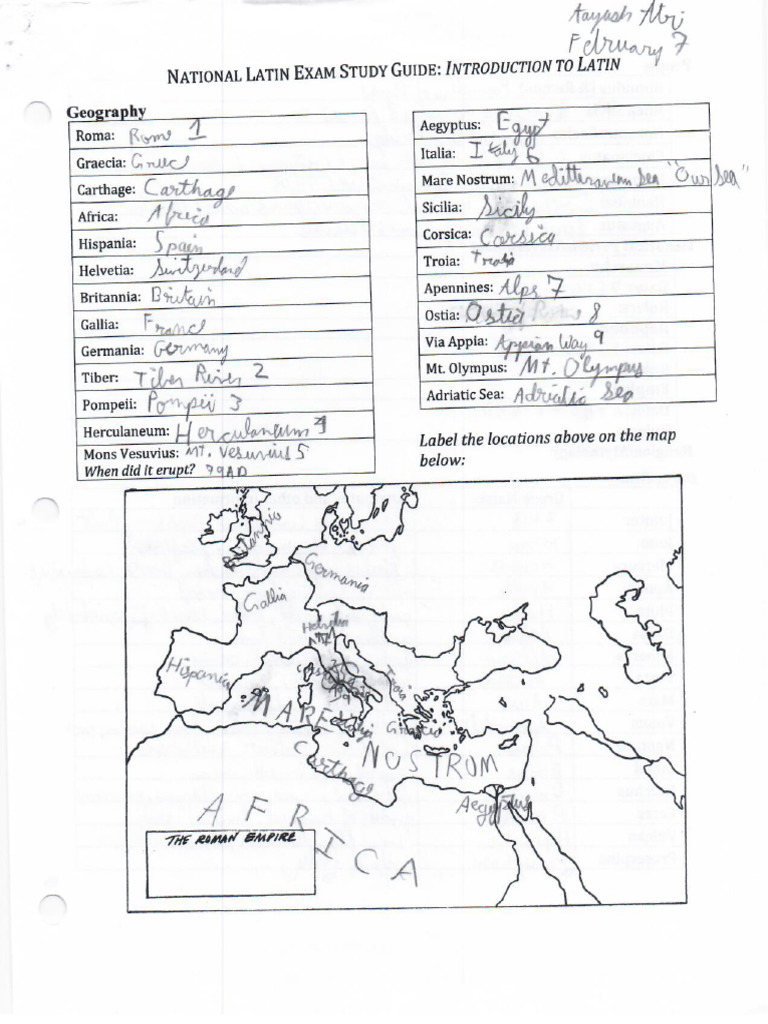 Aayush Atri
February 7
NATIONAL LATIN EXAM STUDY GUIDE: INTRODUCTION TO LATIN
Geography
Roma: Rome 1
Graecia: Greece
Carthage: Carthage
Africa: Africa
Hispania: Spain
Helvetia: Switzerland
Britannia: Britain
Gallia: France
Germania: Germany
Tiber: Tiber River 2
Pompeii: Pompeii 3
Herculaneum: Herculaneum 4
Mons Vesuvius: MT. Vesuvius 5
When did it erupt? 79AD
Aegyptus: Egypt
Italia: Italy 6
Mare Nostrum: Meditteranean Sea "Our Sea"
Sicilia: Sicily
Corsica: Corsica
Troia: Troia
Apennines: Alps 7
Ostia: Ostia 8
Via Appia: Appian Way 9
Mt. Olympus: Mt. Olympus
Adriatic Sea: Adriatic Sea
Label the locations above on the map
below:
Britannia
Germania
Gallia
Helvetia
Hispania
Troia
MARE
Graecia
NOSTROM
Carthage
Aegyptus
AFRICA
THE ROMAN EMPIRE